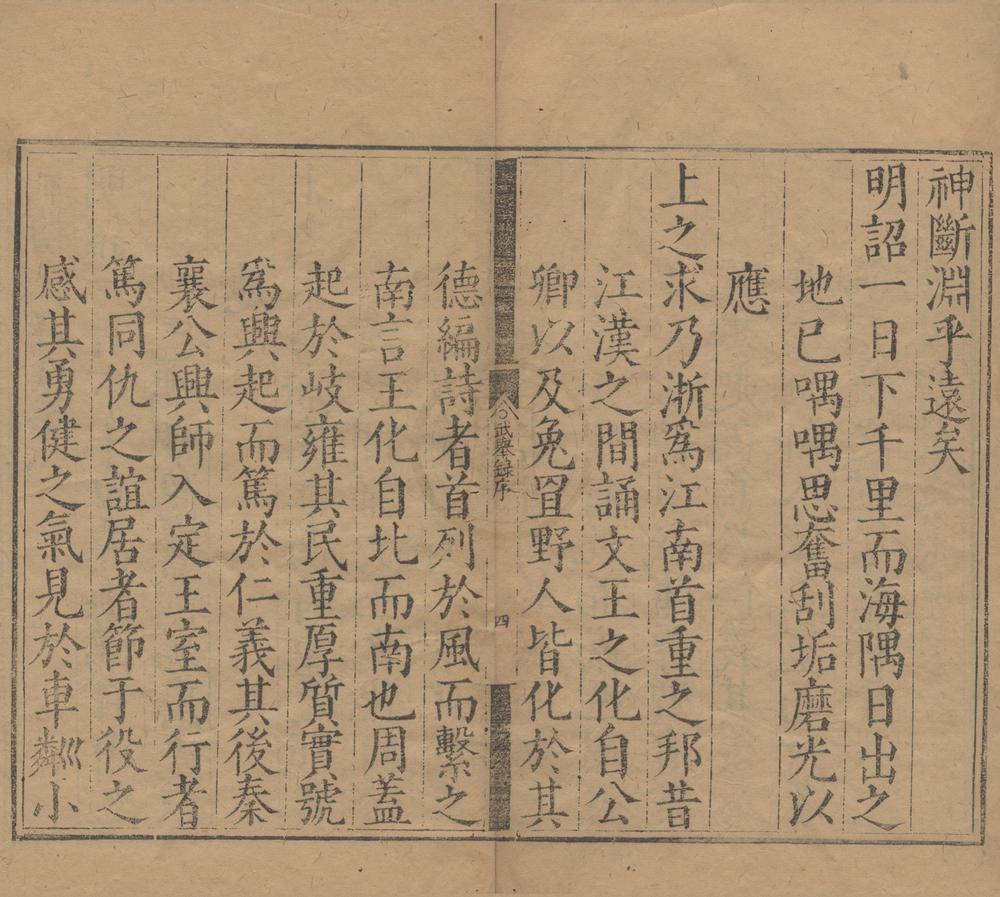 神斷淵乎遠矣
明詔一日下千里而海隅日出之
地已喁喁思奮刮垢磨光以
應
上之求乃浙爲江南首重之邦昔
江漢之間誦文王之化自公
卿以及兔罝野人皆化於其
武舉錄序
四
德編詩者首列於風而繫之
南言王化自北而南也周蓋
起於岐雍其民重厚質實號
爲興起而篤於仁義其後秦
襄公興師入定王室而行者
篤同仇之誼居者節于役之
感其勇健之氣見於車鄰小